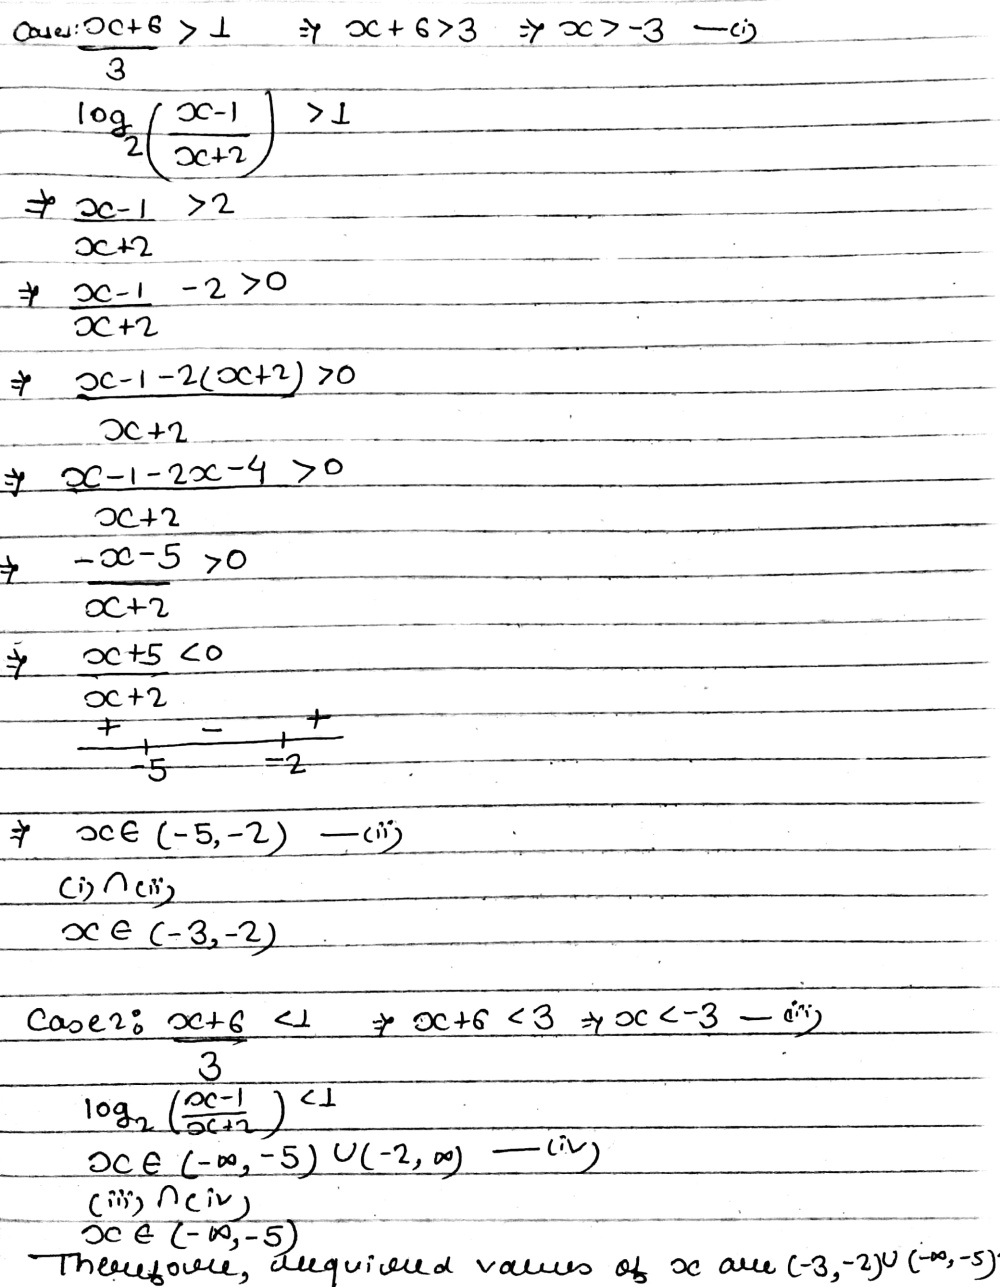 Case1: x+6/3 > 1 ⇒ x+6>3 ⇒ x>-3 —(i)
log₂((x-1)/(x+2)) >1
⇒ (x-1)/(x+2) >2
⇒ (x-1)/(x+2) -2 >0
⇒ (x-1-2(x+2))/(x+2) >0
⇒ (x-1-2x-4)/(x+2) >0
⇒ (-x-5)/(x+2) >0
⇒ (x+5)/(x+2) <0
+ - +
-5 -2
⇒ x∈ (-5,-2) —(ii)
(i) ∩ (ii)
x ∈ (-3,-2)
Case2: (x+6)/3 <1 ⇒ x+6 <3 ⇒ x<-3 —(iii)
log₂((x-1)/(x+2)) <1
x∈ (-∞,-5) ∪(-2,∞) —(iv)
(iii) ∩ (iv)
x ∈ (-∞,-5)
Therefore, required values of x are (-3,-2)∪(-∞,-5)